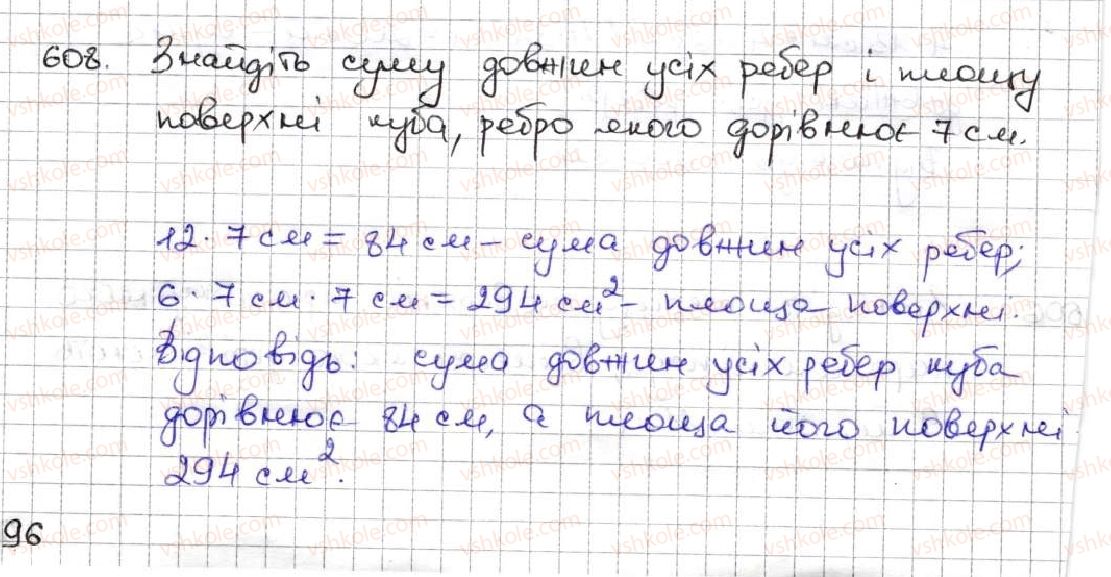 608. Знайдіть суму довжин усіх ребер і площу
поверхні куба, ребро якого дорівнює 7 см.
12 · 7 см = 84 см – сума довжин усіх ребер;
6 · 7 см · 7 см = 294 см² – площа поверхні.
Відповідь: сума довжин усіх ребер куба
дорівнює 84 см, а площа його поверхні
294 см².
96